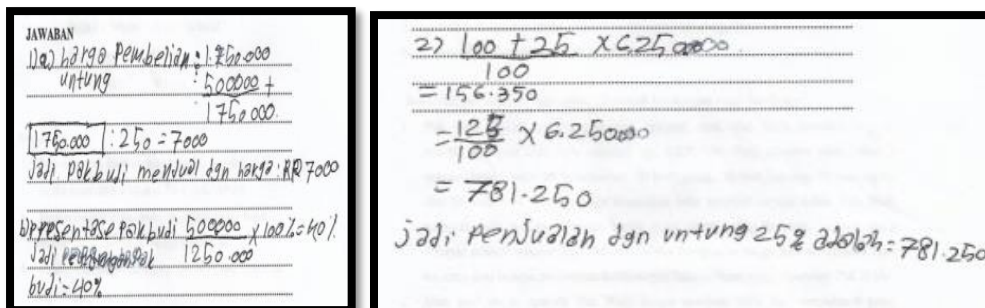 JAWABAN
1)a) harga pembelian : 1.250.000
untung : 500000 +
1750 000.
1750.000 : 250 = 7000
Jadi Pak budi menjual dgn harga : RP 7000
b) presentase Pak budi 500000 x 100% = 40%
1250.000
Jadi
budi = 40%
2) 100 + 25 x 6.250000
100
= 156.350
= 125 x 6.250000
100
= 781.250
jadi penjualan dgn untung 25% adalah = 781.250